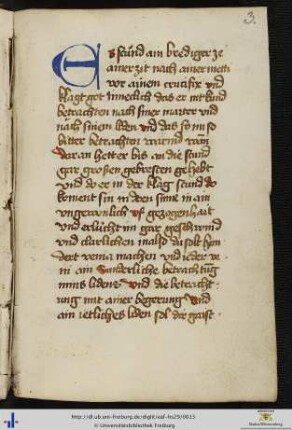 3.
Es stuͦnd ain brediger ze
ainer zit nach ainer metti
vor ainem crucifix vnd
klagt got inneclich das er nit kund
betrachten nach siner marter vnd
nach sinem liden vnd das so im so
bitter betrachten
dar an hetter bis an die stund
gar grossen gebresten gehebt
vnd do er in der klag stuͦnd do
koment sin in den sinne in ain
vngewonlich vf gezogenhait
vnd erlücht im gar geschwind
vnd clarlichen
dert venia machen vnd ieder ve
ni ain sunderliche betrachtūg
mins lidens vnd die betracht
ung mit ainer begerung vnd
ain ietliches liden sol die gaist
http://dl.ub.uni-freiburg.de/diglit/saf-hs29/0013
© Universitätsbibliothek Freiburg
Baden-Württemberg